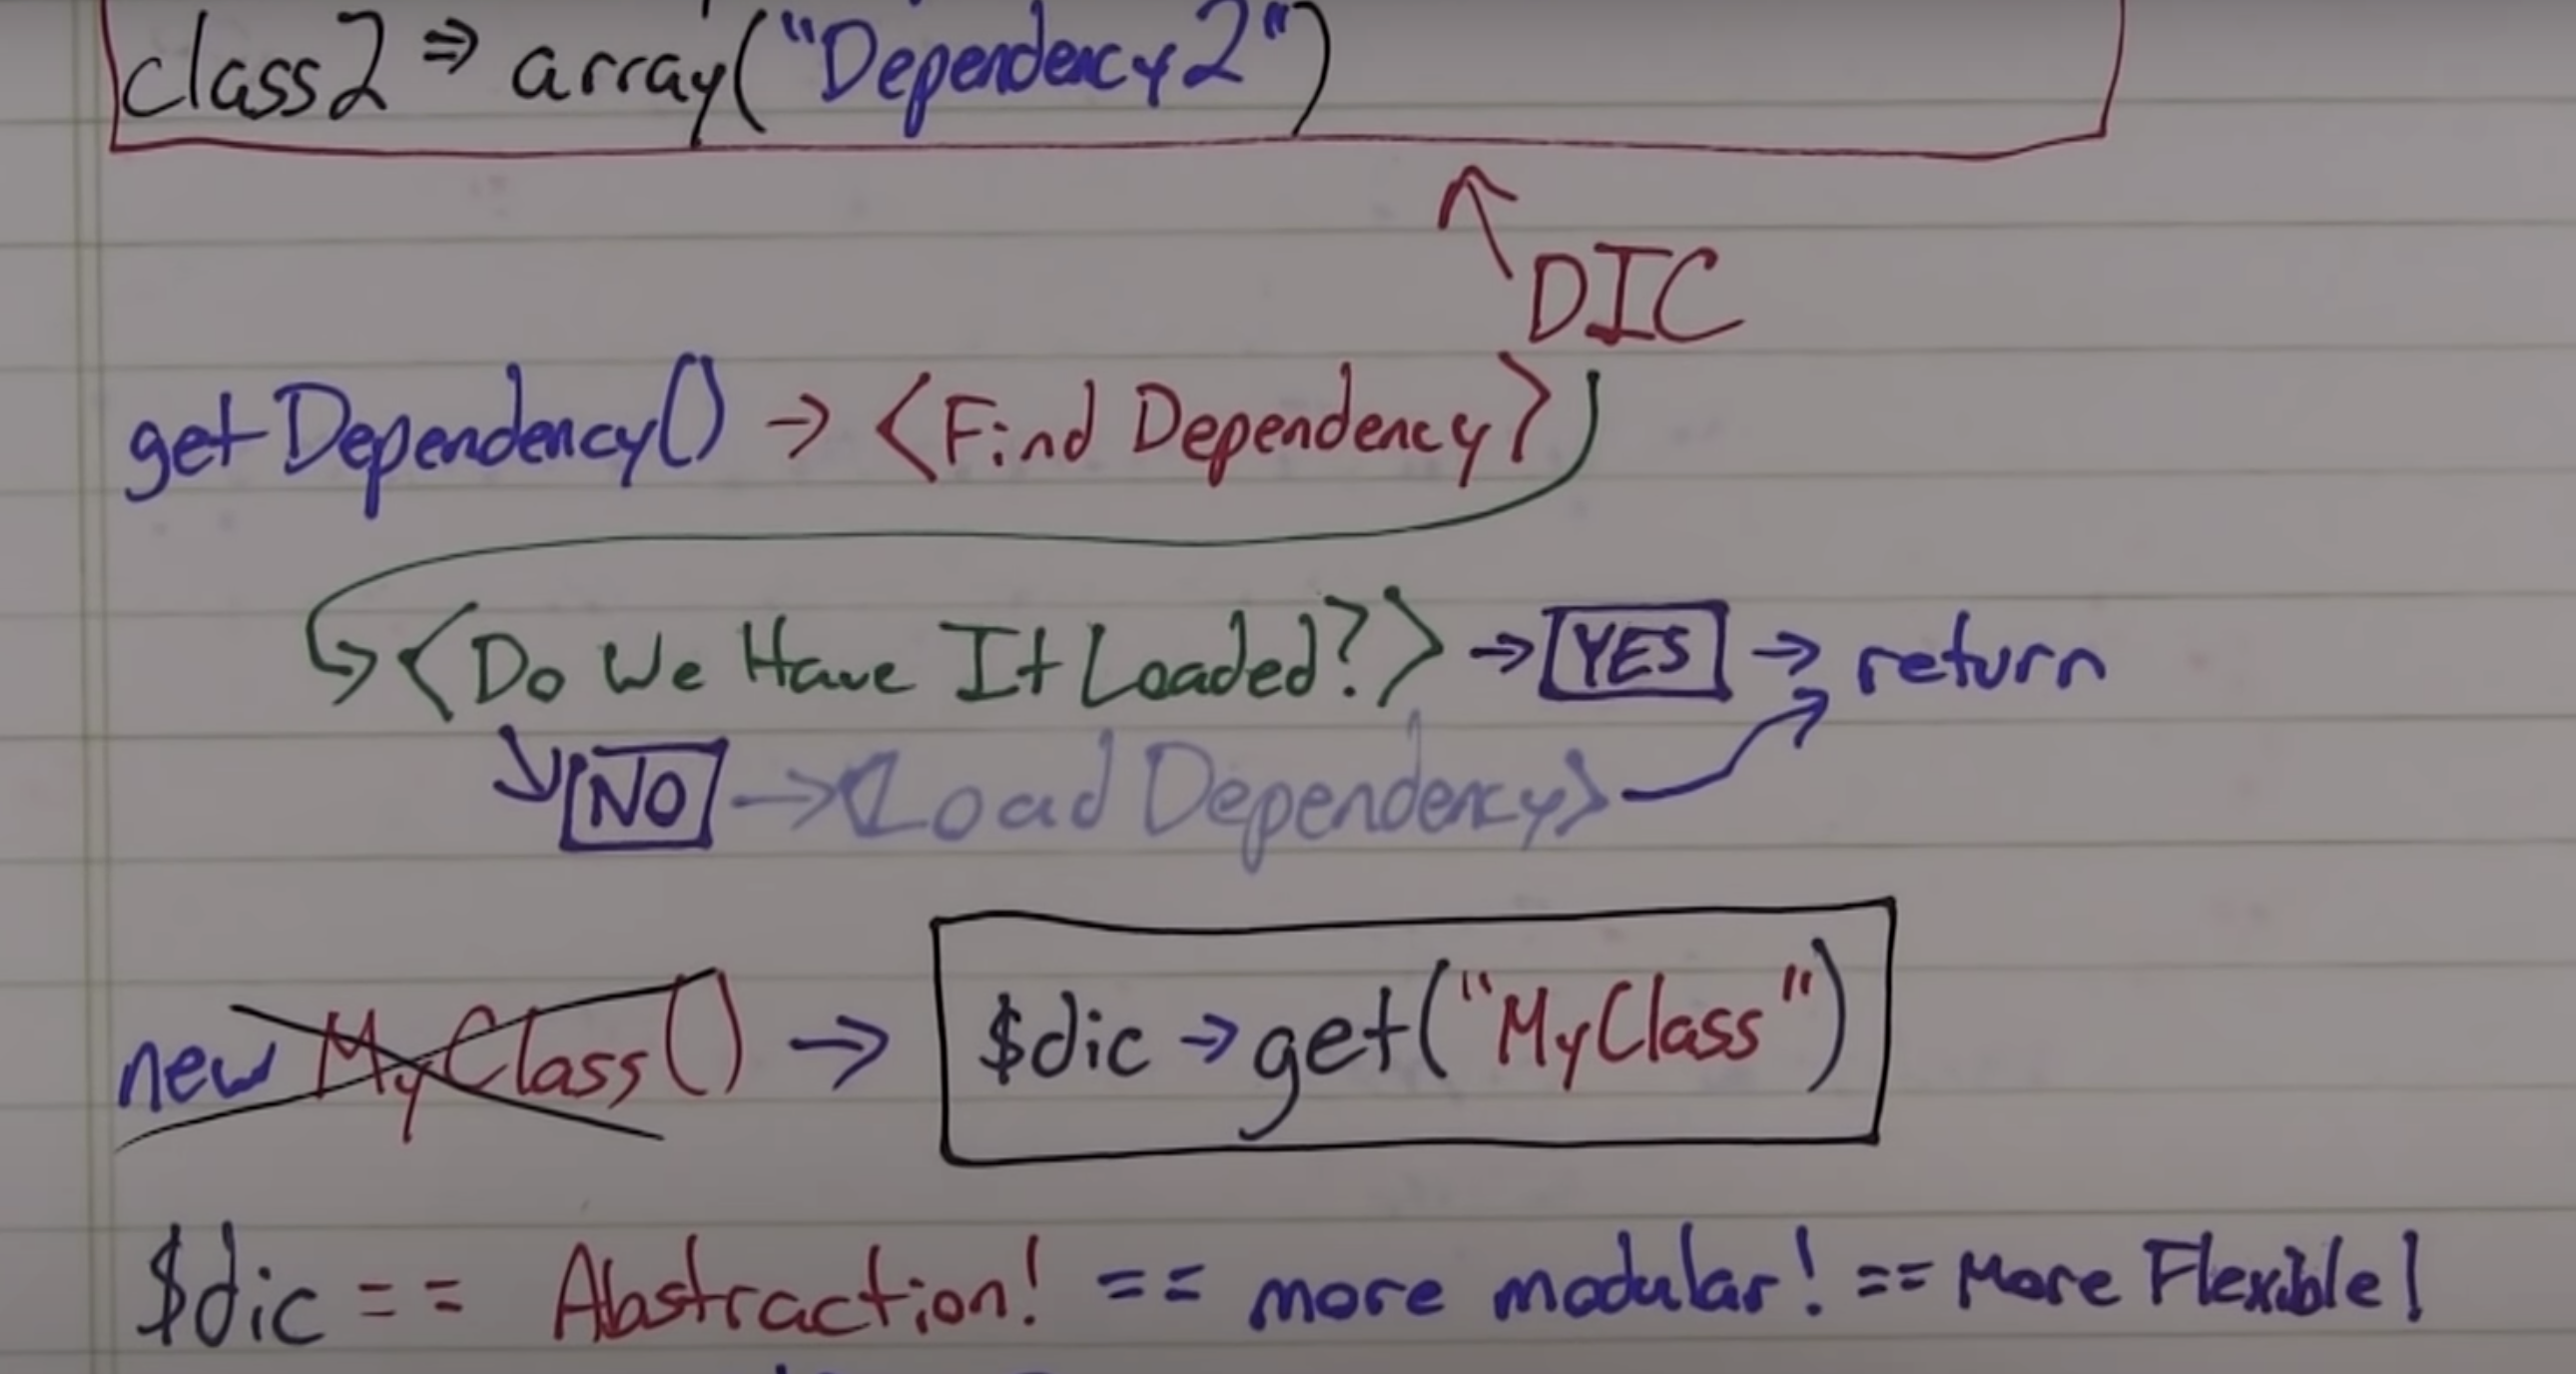 class2 ⇒ array("Dependency2")
DIC
getDependency() → <Find Dependency>
<Do We Have It Loaded?> → YES → return
NO → <Load Dependency>
new MyClass() → $dic → get("MyClass")
$dic == Abstraction! == more modular! == More Flexible!